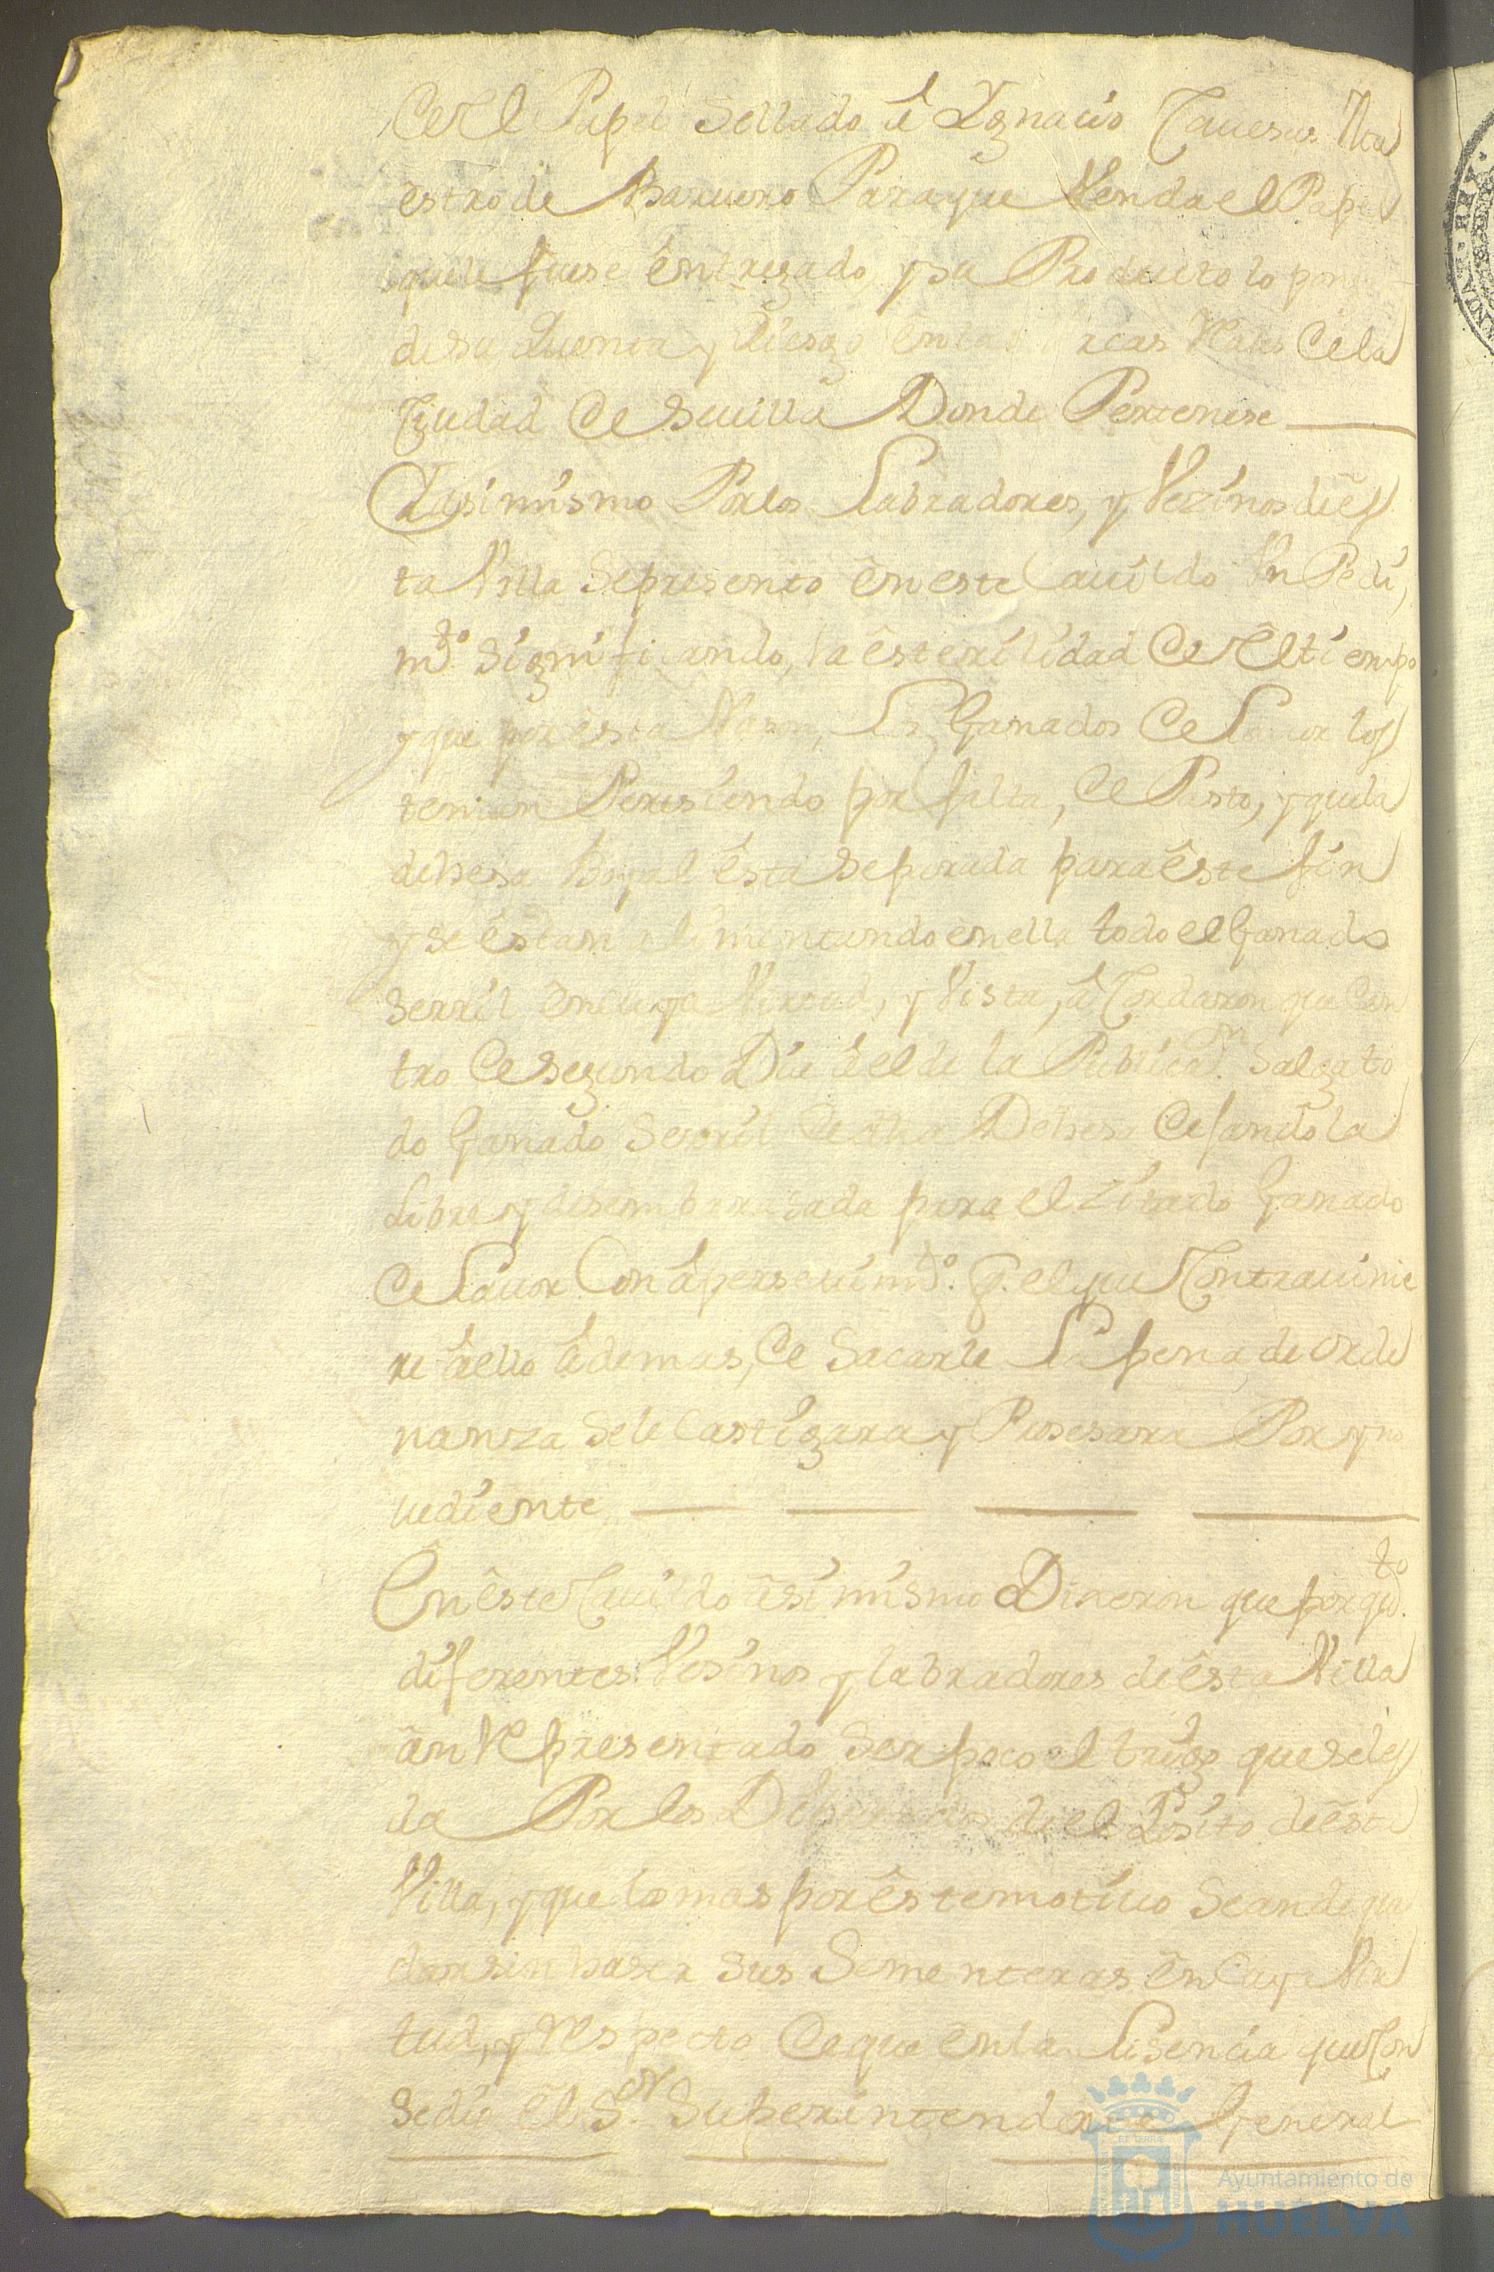 de el Papel Sellado â Ygnacio Tauesos Ma
estro de Baruero Para que Venda el Papel
que le fuese êntregado y su Producto lo pon
de su Quenta y Riesgo en las Arcas Rs de la
Ziudad de Seuilla Donde Pertenese
Y asimismo Por los Labradores, y Vezinos de ês
ta Villa Se presento ên este Cauildo Vn Pedi,
mto. Significando, la êsterilidad de el tiempo
y que por êsta Rason, los Ganados de Lauor los
tenian Peresiendo por falta, de Pasto, y que la
dehesa Boyal êsta Separada para êste fin
y se êstan alimentando en ella todo el Ganado
Serril ên cuya Virtud, y Vista, âCordaron que den
tro de Segundo Dia â el de la Publican. Salga to
do Ganado Serril de dha Dehesa deJandola
Libre y desembarasada para el Zitado Ganado
de Lauor Con âperseuimto. q. el que Contrauinie
re â ello âdemas, de Sacarle La pena de orde
nanza Se le Castigara y Prosesara Por yno
uediente
En êste Cauildo âsimismo Dixeron que por qto.
diferentes Vesinos y labradores de êsta Villa
ân Representado Ser poco el trigo que se les
da Por los Diputados de el Posito de êsta
Villa, y que los mas por êste motiuo Se an de que
dar sin haser sus Sementeras ên Cuya Vir
tud, y Respecto de que ên la Lisencia que Con
Sedio êl Sor. Superintendente General
Ayuntamiento de
HUELVA